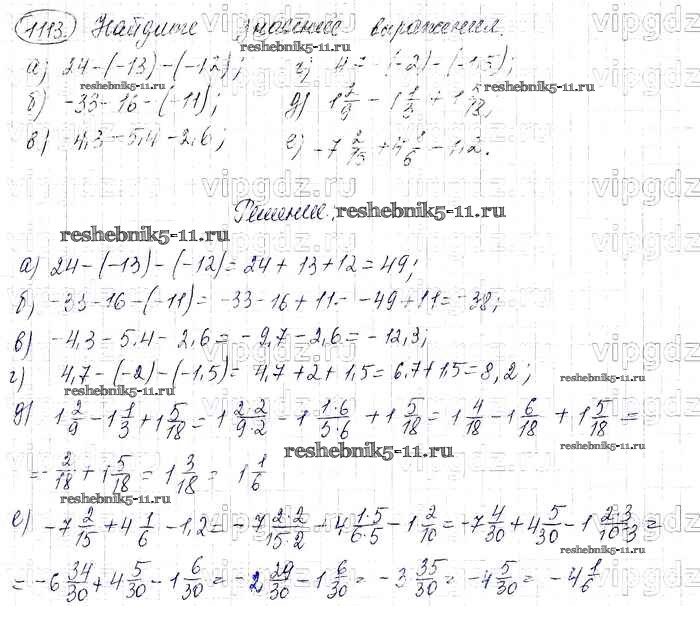 1113. Найдите значение выражения,
а) 24-(-13)-(-12); г) 4 - (-2)-(-1,5);
б) -33-16-(-11); д) 1 2/9 - 1 1/3 + 1 5/18;
в) -4,3-5,4-2,6; е) -7 2/15 + 4 1/6 - 1,2.
Решение.
а) 24-(-13)-(-12)=24+13+12=49;
б) -33-16-(-11)= -33-16+11= -49+11=-38;
в) -4,3-5.4-2,6=-9,7-2,6=-12,3;
г) 4,7-(-2)-(-1,5)= 4,7+2+1,5=6.7+1.5=8,2;
д) 1 2/9 - 1 1/3 + 1 5/18 = 1 2·2/9·2 - 1 1·6/3·6 + 1 5/18 = 1 4/18 - 1 6/18 + 1 5/18 =
=-2/18 + 1 5/18 = 1 3/18 = 1 1/6
е) -7 2/15 + 4 1/6 - 1,2 = -7 2·2/15·2 + 4 1·5/6·5 - 1 2/10 = -7 4/30 + 4 5/30 - 1 2·3/10·3 =
= -6 34/30 + 4 5/30 - 1 6/30 = -2 29/30 - 1 6/30 = -3 35/30 = -4 5/30 = -4 1/6
vipgdz.ru
reshebnik5-11.ru